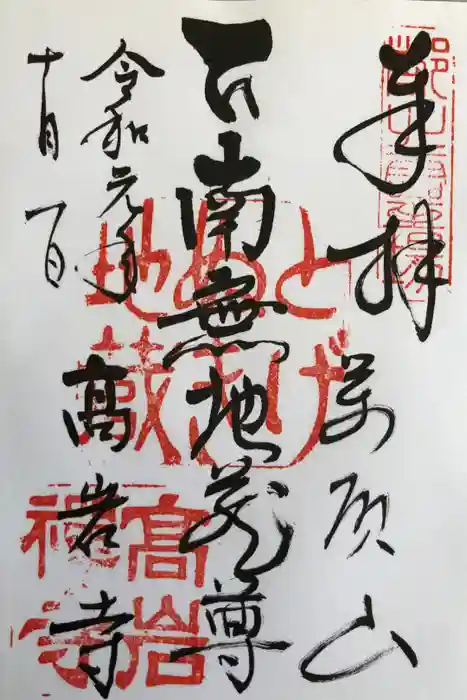 奉拝
萬頂山
南無地蔵尊
令和元年
十月一日
髙岩寺
とげ
ぬき
地蔵
高岩
禅寺